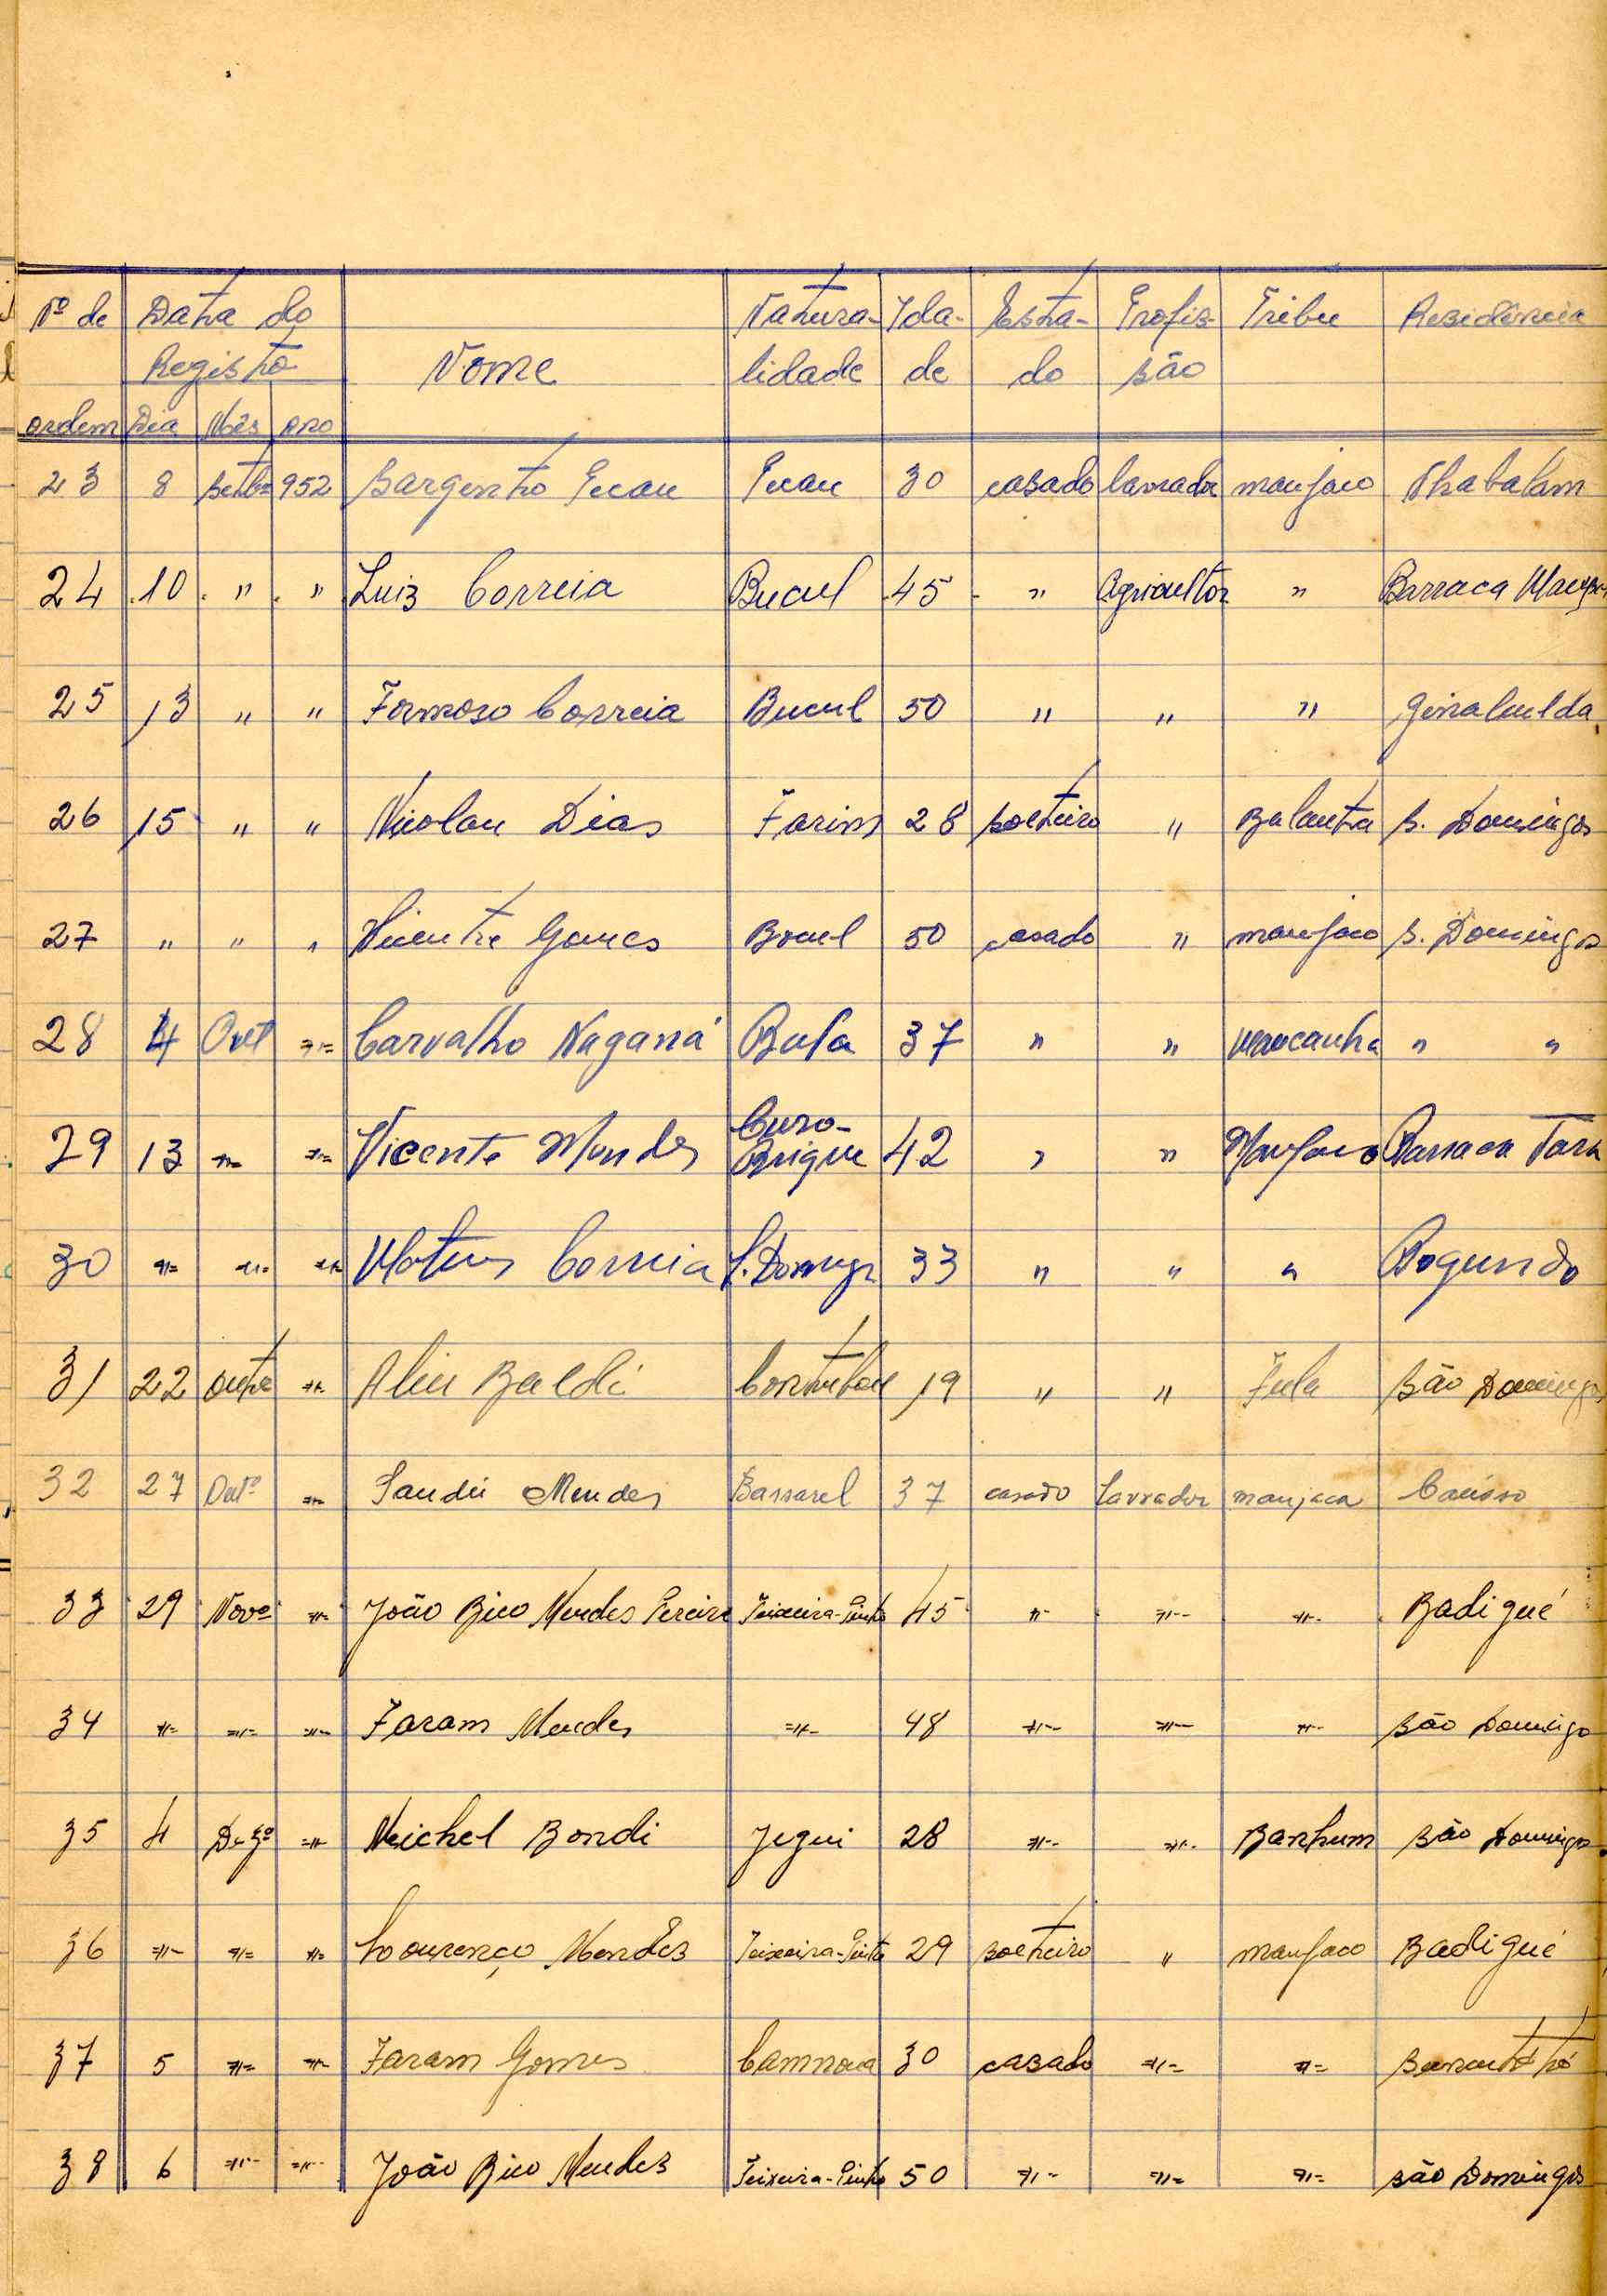 Nº de Data do Natura- Ida- Esta- Profis- Tribu Residência
Registo Nome lidade de do são
ordem Dia Mês ano
23 8 Setbº 952 Sargento Pecau Pecau 30 casado lavrador manjaco
24 10 " " Luiz Correia Bucul 45 " Agricultor " Barraca
25 13 " " Formoso Correia Bucul 50 " " "
26 15 " " Nicolau Dias Farim 28 solteiro " Balanta S. Domingos
27 " " " Vicente Gomes Bocul 50 casado " manjaco S. Domingos
28 4 Out -"- Carvalho Naganá Bula 37 " " mancanha " "
29 13 -"- -"- Vicente Mendes 42 " " Manjaco Barraca
30 -"- -"- -"- Mateus Correia S. Domingos 33 " " "
31 22 Outº -"- Aliu Baldi Contubou 19 " " Fula São Domingos
32 27 Outº -"- Mendes Bassarel 37 casado Lavrador manjaca
33 29 Novº -"- João Bico Mendes Pereira Teixeira-Pinto 45 -"- -"- -"- Badigué
34 -"- -"- -"- Faram Mendes -"- 48 -"- -"- -"- São Domingo
35 4 Dezº -"- Michel Bondi Jegui 28 -"- -"- Banhum São Domingos
36 -"- -"- -"- Lourenço Mendes Teixeira-Pinto 29 solteiro " manjaco Badigué
37 5 -"- -"- Faram Gomes 30 casado -"- -"-
38 6 -"- -"- João Bico Mendes Teixeira-Pinto 50 -"- -"- -"- São Domingos